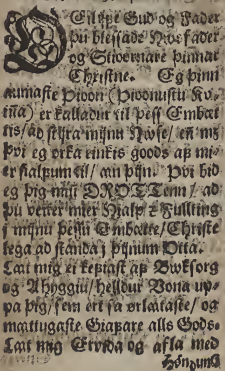 EIlijfe Gud og Fader
þu blessade Hwsfader
og Stiornare þinnar
Christne. Eg þinn
aumaste Þioon (Þioonustu Kv-
iña) er kalladur til þess Embat-
tis / ad styra mijnu Hwse / eñ mz
þvi eg orka einkis goods af mi-
er sialfum til / an þijn. Þvi bid
eg þig minn DROTTenn / ad
þu veiter mier Hialp z Fullting
i mijnu þessu Embætte / Christe
lega ad standa i þijnum Otta.
Lat mig ei kefiast af Bwksorg
og Ahyggiu / helldur Vona up-
pa þig / sem ert sa ørlataste / og
mattugaste Giafare alls Gods.
Lat mig Ervida og afla med
Høndunū